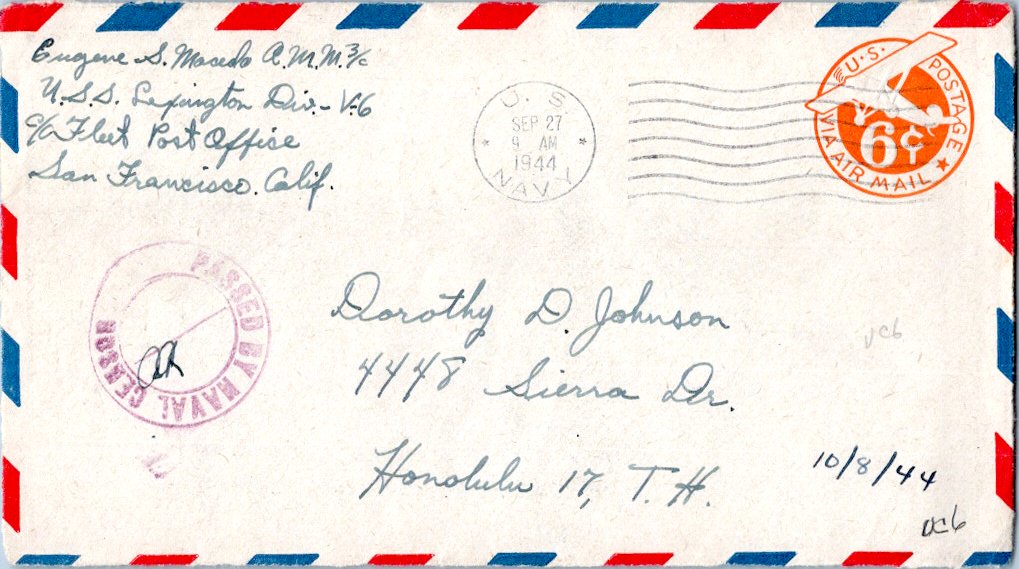 Eugene S. Macedo A.M.M. 3/c
U.S.S. Lexington Div.- V-6
c/o Fleet Post Office
San Francisco. Calif.
U. S.
SEP 27
9 AM
1944
NAVY
U.S. POSTAGE
6¢
VIA AIR MAIL
PASSED BY NAVAL CENSOR
Dorothy D. Johnson
4448 Sierra Dr.
Honolulu 17, T. H.
10/8/44
UC6